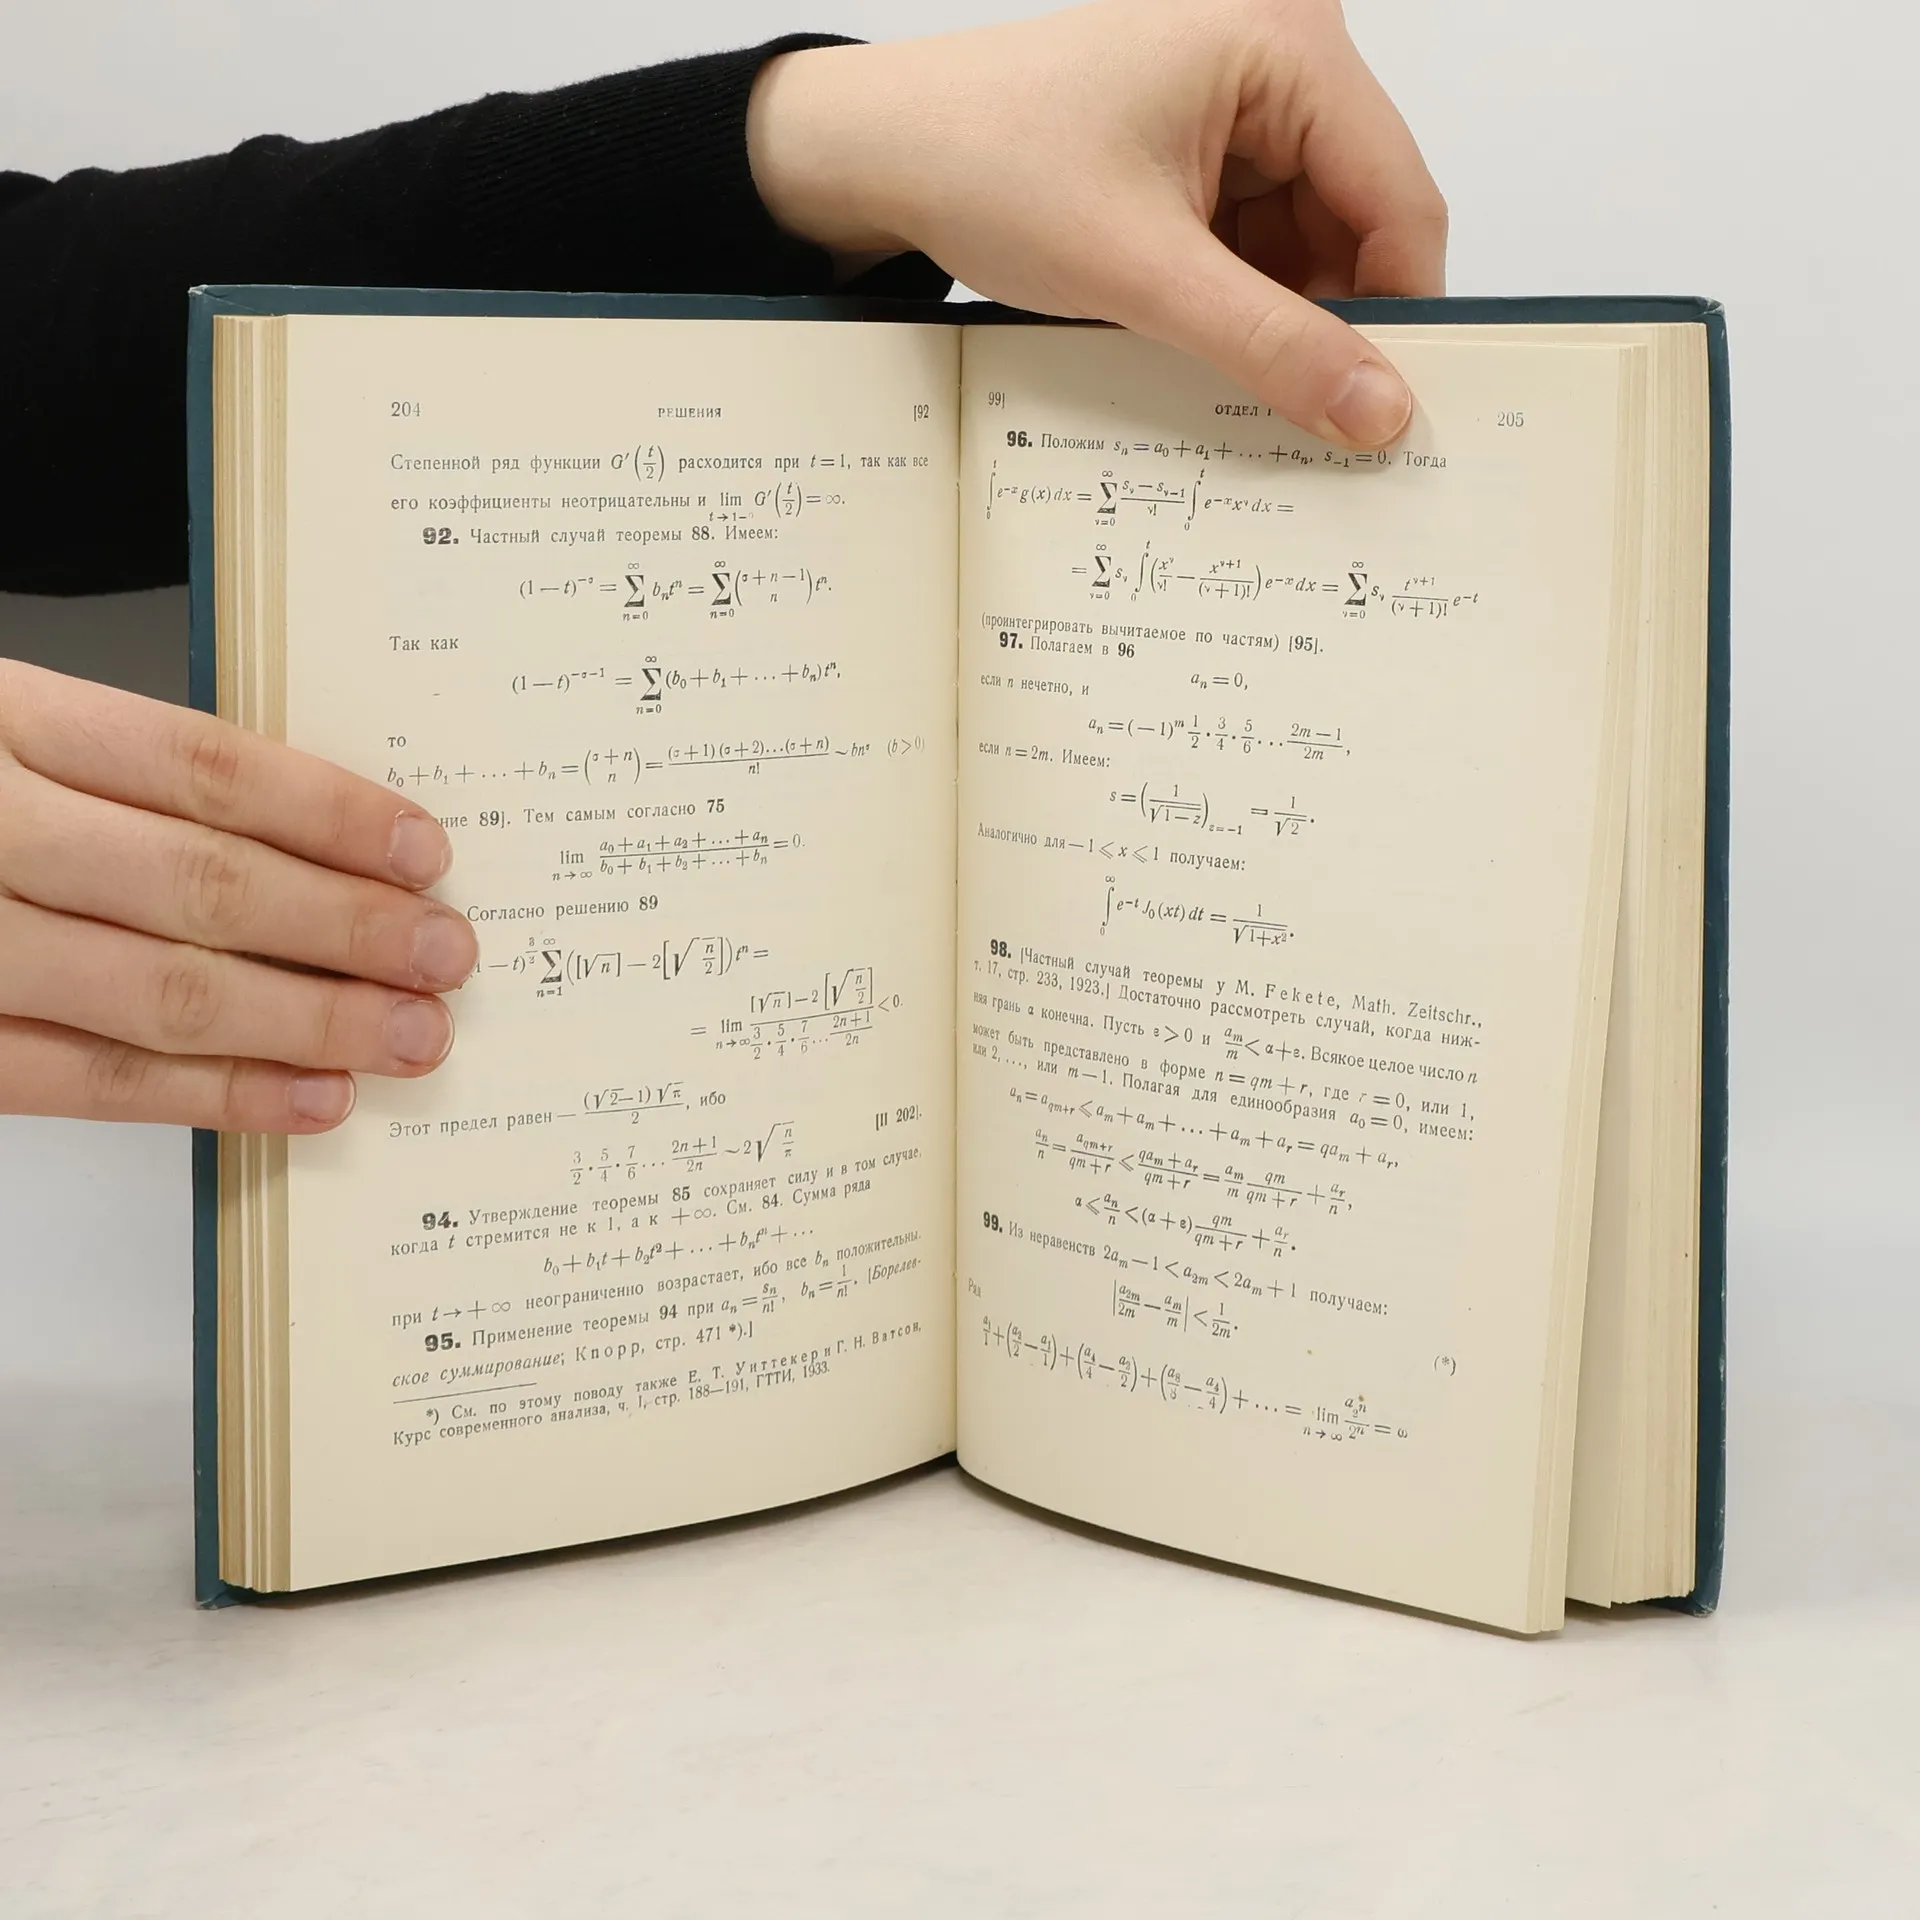 204 РЕШЕНИЯ [92
Степенной ряд функции G′(t/2) расходится при t=1, так как все
его коэффициенты неотрицательны и lim_{t→1−0} G′(t/2)=∞.
92. Частный случай теоремы 88. Имеем:
(1−t)^{−σ} = ∑_{n=0}^{∞} b_n t^n = ∑_{n=0}^{∞} (σ+n−1 / n) t^n.
Так как
(1−t)^{−σ−1} = ∑_{n=0}^{∞} (b_0+b_1+...+b_n) t^n,
то
b_0+b_1+...+b_n = (σ+n / n) = (σ+1)(σ+2)...(σ+n) / n! ∼ bn^σ (b>0)
ние 89]. Тем самым согласно 75
lim_{n→∞} (a_0+a_1+a_2+...+a_n) / (b_0+b_1+b_2+...+b_n) = 0.
Согласно решению 89
−t)^{3/2} ∑_{n=1}^{∞} ([√n]−2[√(n/2)]) t^n =
= lim_{n→∞} ([√n]−2[√(n/2)]) / (3/2 · 5/4 · 7/6 ... (2n+1)/2n) < 0.
Этот предел равен −(√2−1)√π / 2, ибо
3/2 · 5/4 · 7/6 ... (2n+1)/2n ∼ 2√(n/π) [II 202].
94. Утверждение теоремы 85 сохраняет силу и в том случае,
когда t стремится не к 1, а к +∞. См. 84. Сумма ряда
b_0+b_1t+b_2t²+...+b_nt^n+...
при t→+∞ неограниченно возрастает, ибо все b_n положительны.
95. Применение теоремы 94 при a_n = s_n/n!, b_n = 1/n!. [Борелев-
ское суммирование; Кнопп, стр. 471 *).]
*) См. по этому поводу также Е. Т. Уиттекер и Г. Н. Ватсон,
Курс современного анализа, ч. I, стр. 188—191, ГТТИ, 1933.
99] ОТДЕЛ I 205
96. Положим s_n=a_0+a_1+...+a_n, s_{−1}=0. Тогда
∫_0^t e^{−x} g(x) dx = ∑_{ν=0}^{∞} (s_ν−s_{ν−1})/ν! ∫_0^t e^{−x} x^ν dx =
= ∑_{ν=0}^{∞} s_ν ∫_0^t (x^ν/ν! − x^{ν+1}/(ν+1)!) e^{−x} dx = ∑_{ν=0}^{∞} s_ν t^{ν+1}/(ν+1)! e^{−t}
(проинтегрировать вычитаемое по частям) [95].
97. Полагаем в 96
a_n=0,
если n нечетно, и
a_n=(−1)^m 1/2 · 3/4 · 5/6 ... (2m−1)/2m,
если n=2m. Имеем:
s=(1/√(1−z))_{z=−1} = 1/√2.
Аналогично для −1⩽x⩽1 получаем:
∫_0^∞ e^{−t} J_0(xt) dt = 1/√(1+x²).
98. [Частный случай теоремы у M. Fekete, Math. Zeitschr.,
т. 17, стр. 233, 1923.] Достаточно рассмотреть случай, когда ниж-
няя грань α конечна. Пусть ε>0 и a_m/m<α+ε. Всякое целое число n
может быть представлено в форме n=qm+r, где r=0, или 1,
или 2, ..., или m−1. Полагая для единообразия a_0=0, имеем:
a_n=a_{qm+r}⩽a_m+a_m+...+a_m+a_r=qa_m+a_r,
a_n/n = a_{qm+r}/(qm+r) ⩽ (qa_m+a_r)/(qm+r) = a_m/m · qm/(qm+r) + a_r/n,
α⩽a_n/n<(α+ε) qm/(qm+r) + a_r/n.
99. Из неравенств 2a_m−1<a_{2m}<2a_m+1 получаем:
|a_{2m}/2m − a_m/m| < 1/2m. (*)
Ряд
a_1/1+(a_2/2−a_1/1)+(a_4/4−a_2/2)+(a_8/8−a_4/4)+...= lim_{n→∞} a_{2^n}/2^n = ω